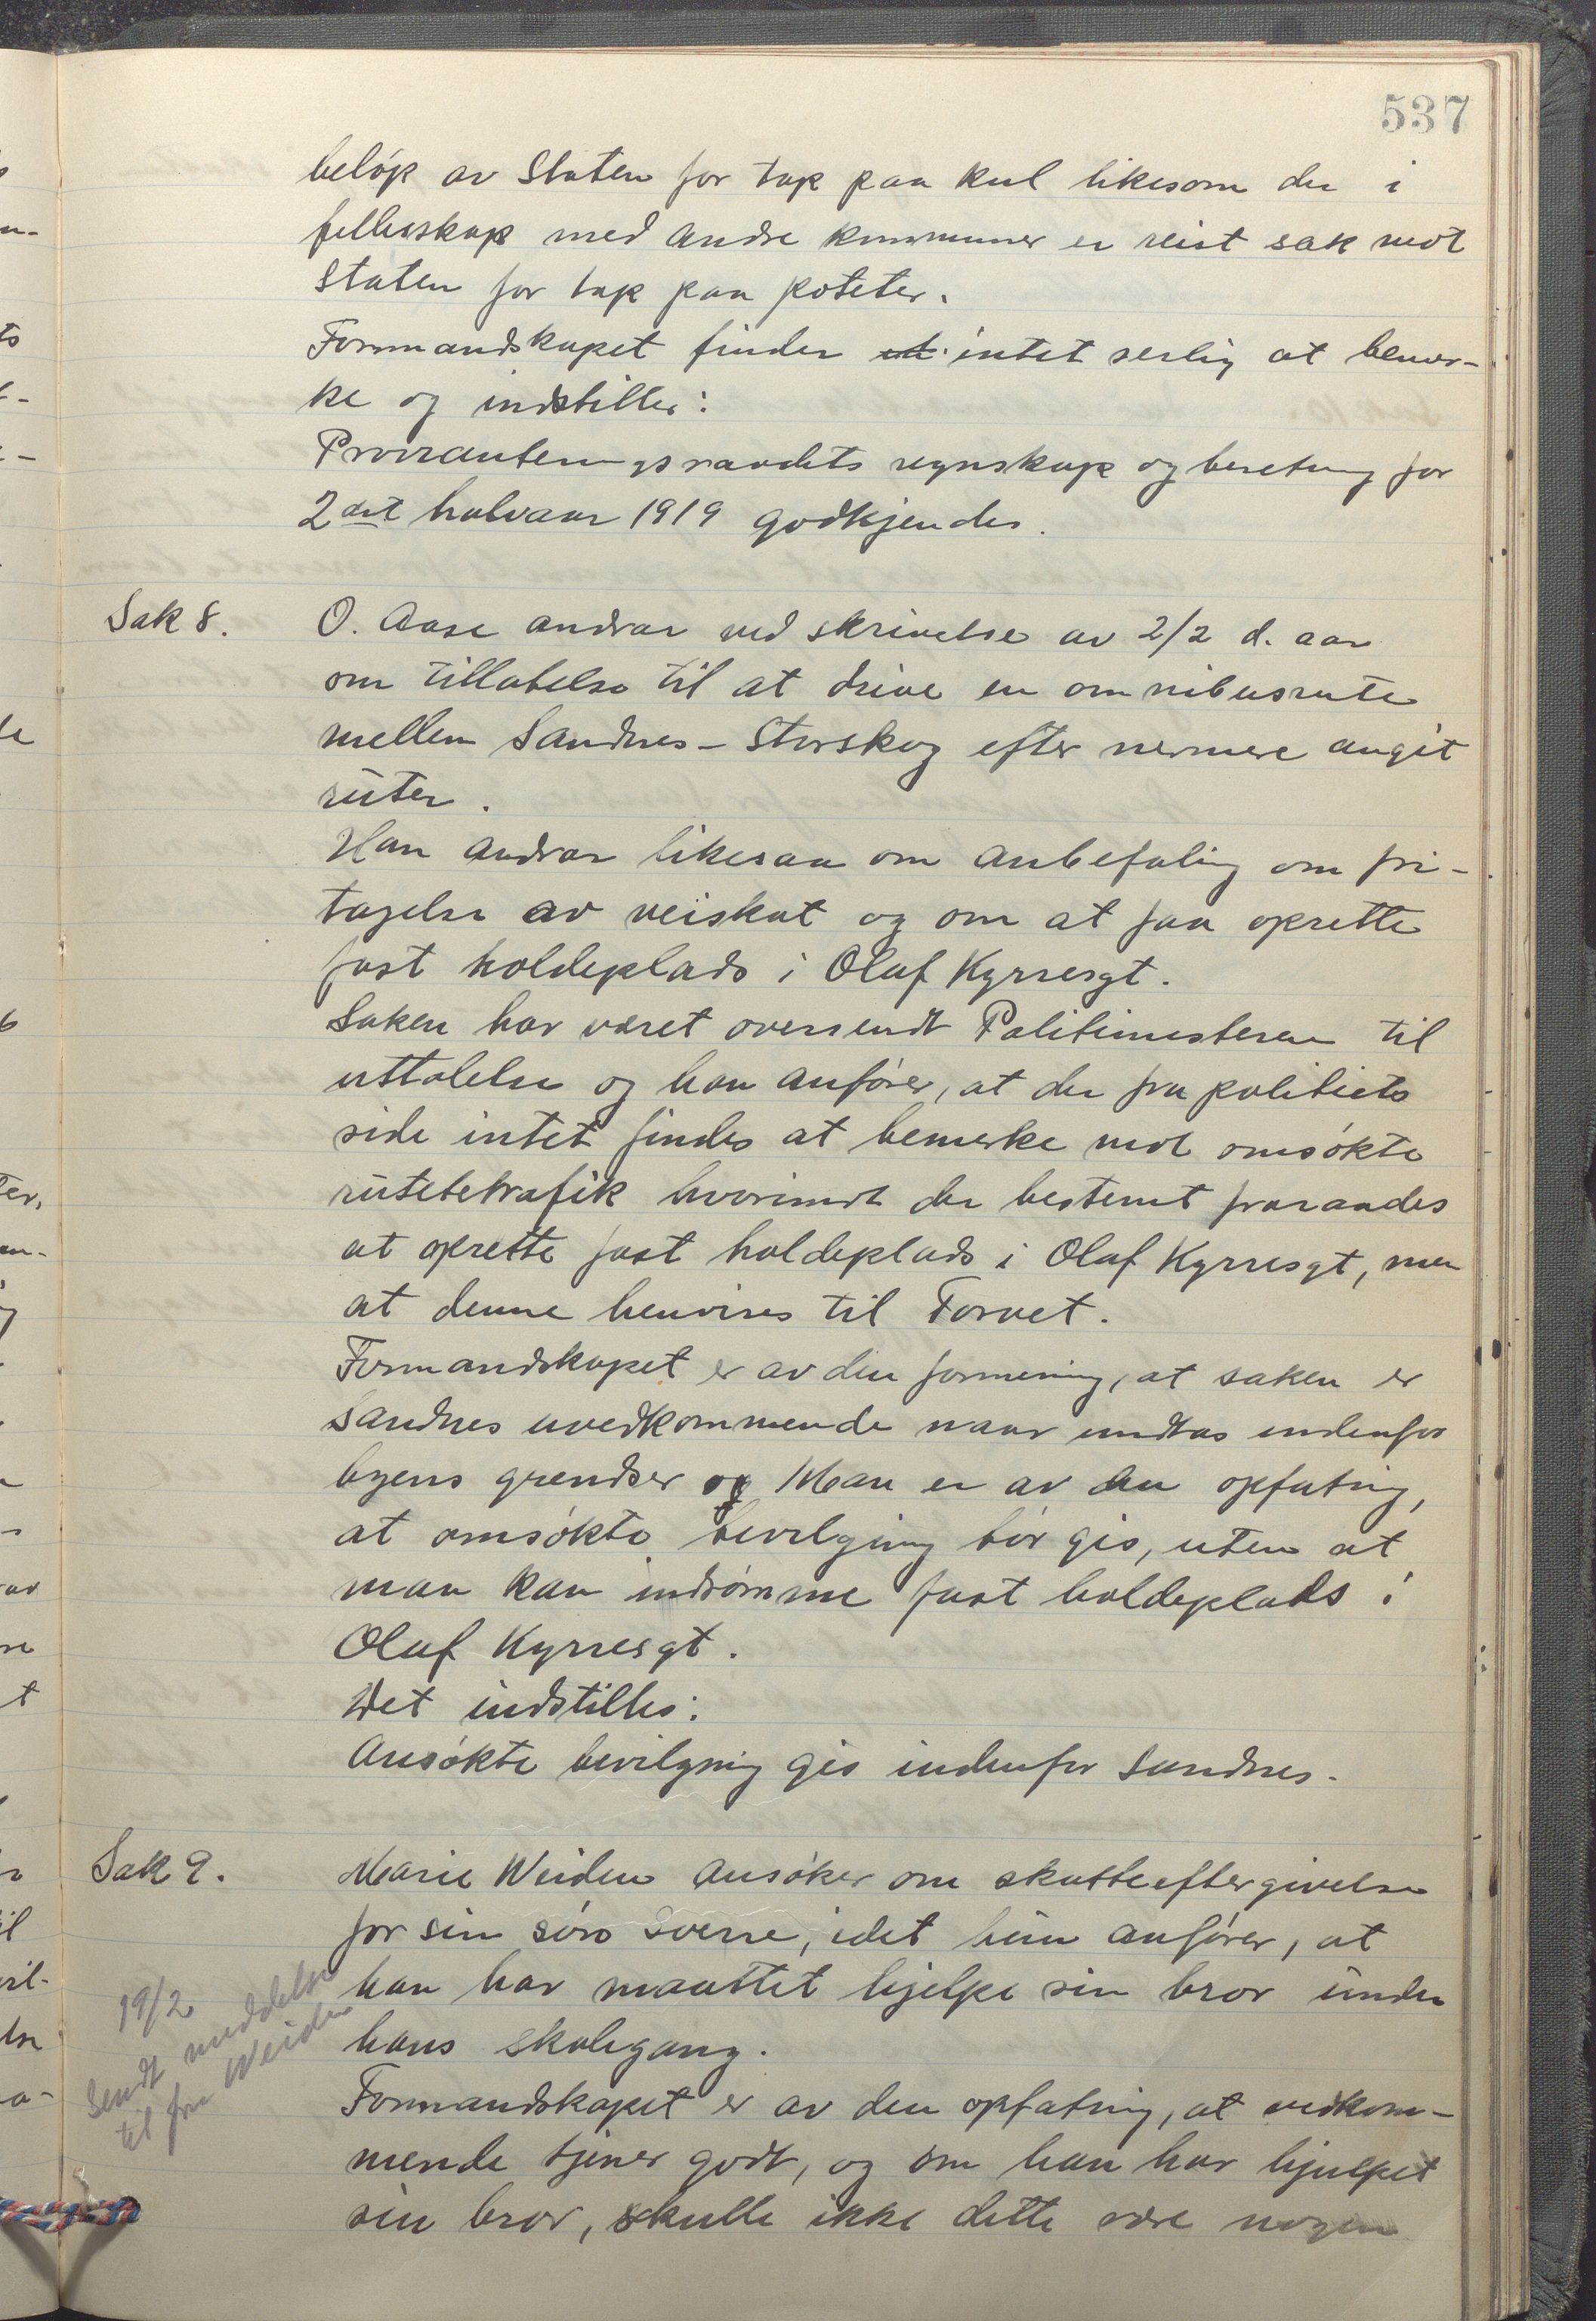 537
beløp av Staten for tap paa kul likesom der i
fellesskap med andre kommuner er reist sak mot
Staten for tap paa poteter.
Formandskapet finder at intet serlig at bemer-
ke og indstiller:
Provianteringsraadets regnskap og beretning for
2det halvaar 1919 godkjendes.
Sak 8.
O. Aase andrar ved skrivelse av 2/2 d. aar
om tillatelse til at drive en omnibusrute
mellem Sandnes - Storskog efter nermere angit
ruter.
Han andrar likesaa om anbefaling om fri-
tagelse av veiskat og om at faa oprette
fast holdeplads i Olaf Kyrresgt.
Saken har været oversendt Politimesteren til
uttalelse og han anfører, at der fra politiets
side intet findes at bemerke mot omsøkte
rutetrafik hvorimot der bestemt fraraades
at oprette fast holdeplads i Olaf Kyrresgt, men
at denne henvises til Torvet.
Formandskapet er av den formening, at saken er
Sandnes uvedkommende naar undtas indenfor
byens grendser og Man er av den opfatning,
at omsøkte bevilgning bør gis, uten at
man kan indrømme fast holdeplads i
Olaf Kyrresgt.
Det indstilles:
Ansøkte bevilgning gis indenfor Sandnes.
Sak 9.
Marie Weiden ansøker om skatteeftergivelse
for sin søn Sverre, idet hun anfører, at
han har maattet hjelpe sin bror under
hans skolegang.
19/2
Sendt meddelse
til fru Weiden
Formandskapet er av den opfatning, at vedkom-
mende tjener godt, og om han har hjulpet
sin bror, skulle ikke dette være nogen